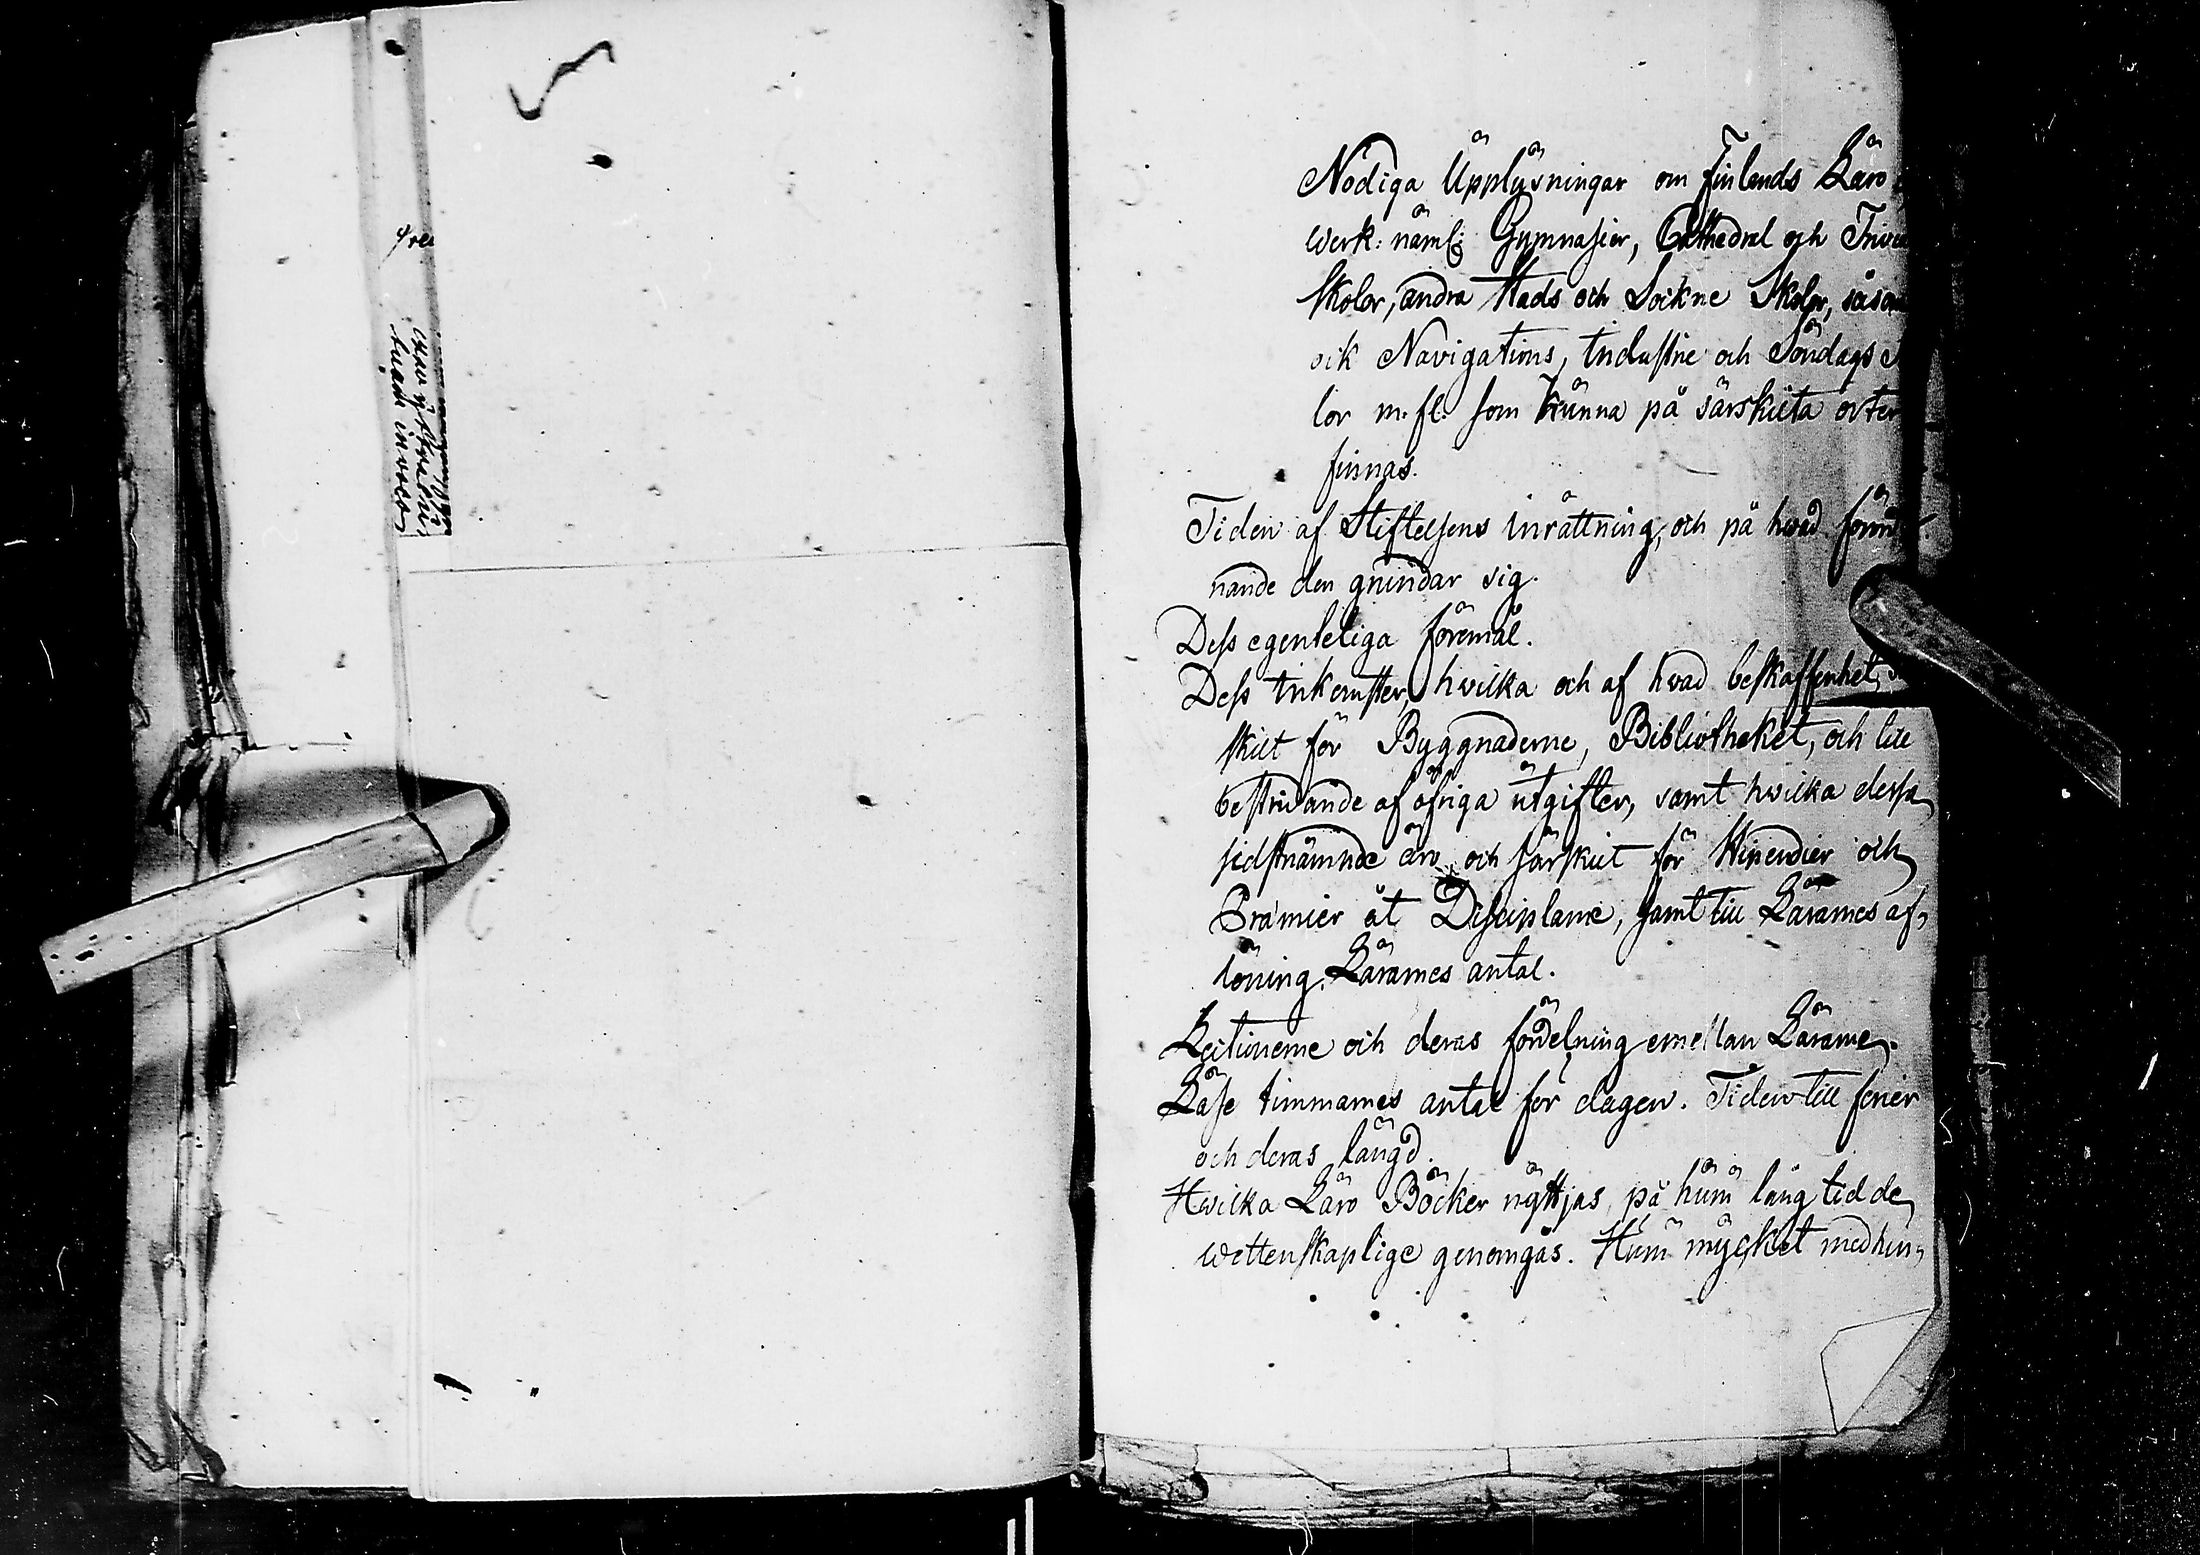 Nödiga Upplysningar om Finlands Läro
werk: näml: Gymnasier, Cathedral och Trivi
skolor, andra Stads och Sockne Skolor, såsom
ock Navigations, Industrie och Söndags S
lor m. fl. som kunna på särskilta orter
finnas.
Tiden af Stiftelsens inrättning, och på hvad förord
nande den grundar sig.
Dess egenteliga föremål.
Dess Inkomster, hvilka och af hvad beskaffenhet, 
skilt för Byggnaderne, Bibliotheket, och till
bestridande af öfriga utgifter, samt hvilka dessa
sidstnämnde äro, och särskilt för Stipendier och
Præmier åt Disciplarne, samt till Lärarnes af-
löning. Lärarnes antal.
Lectionerne och deras fördelning emellan Lärarne.
Läse timmarnes antal för dagen. Tiden till ferier
och deras längd.
Hvilka Läro Böcker nyttjas, på huru lång tid de
wettenskaplige genomgås. Huru mycket medhin-